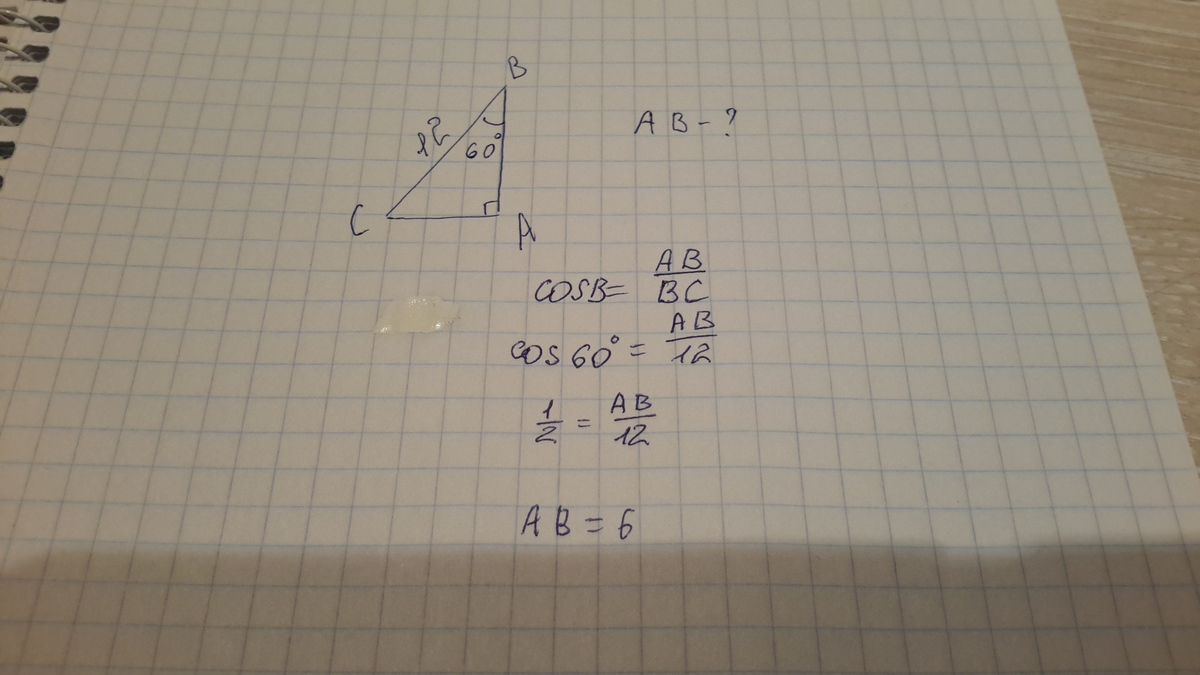 B
12
60°
AB - ?
C
A
cosB = AB/BC
cos 60° = AB/12
1/2 = AB/12
AB = 6